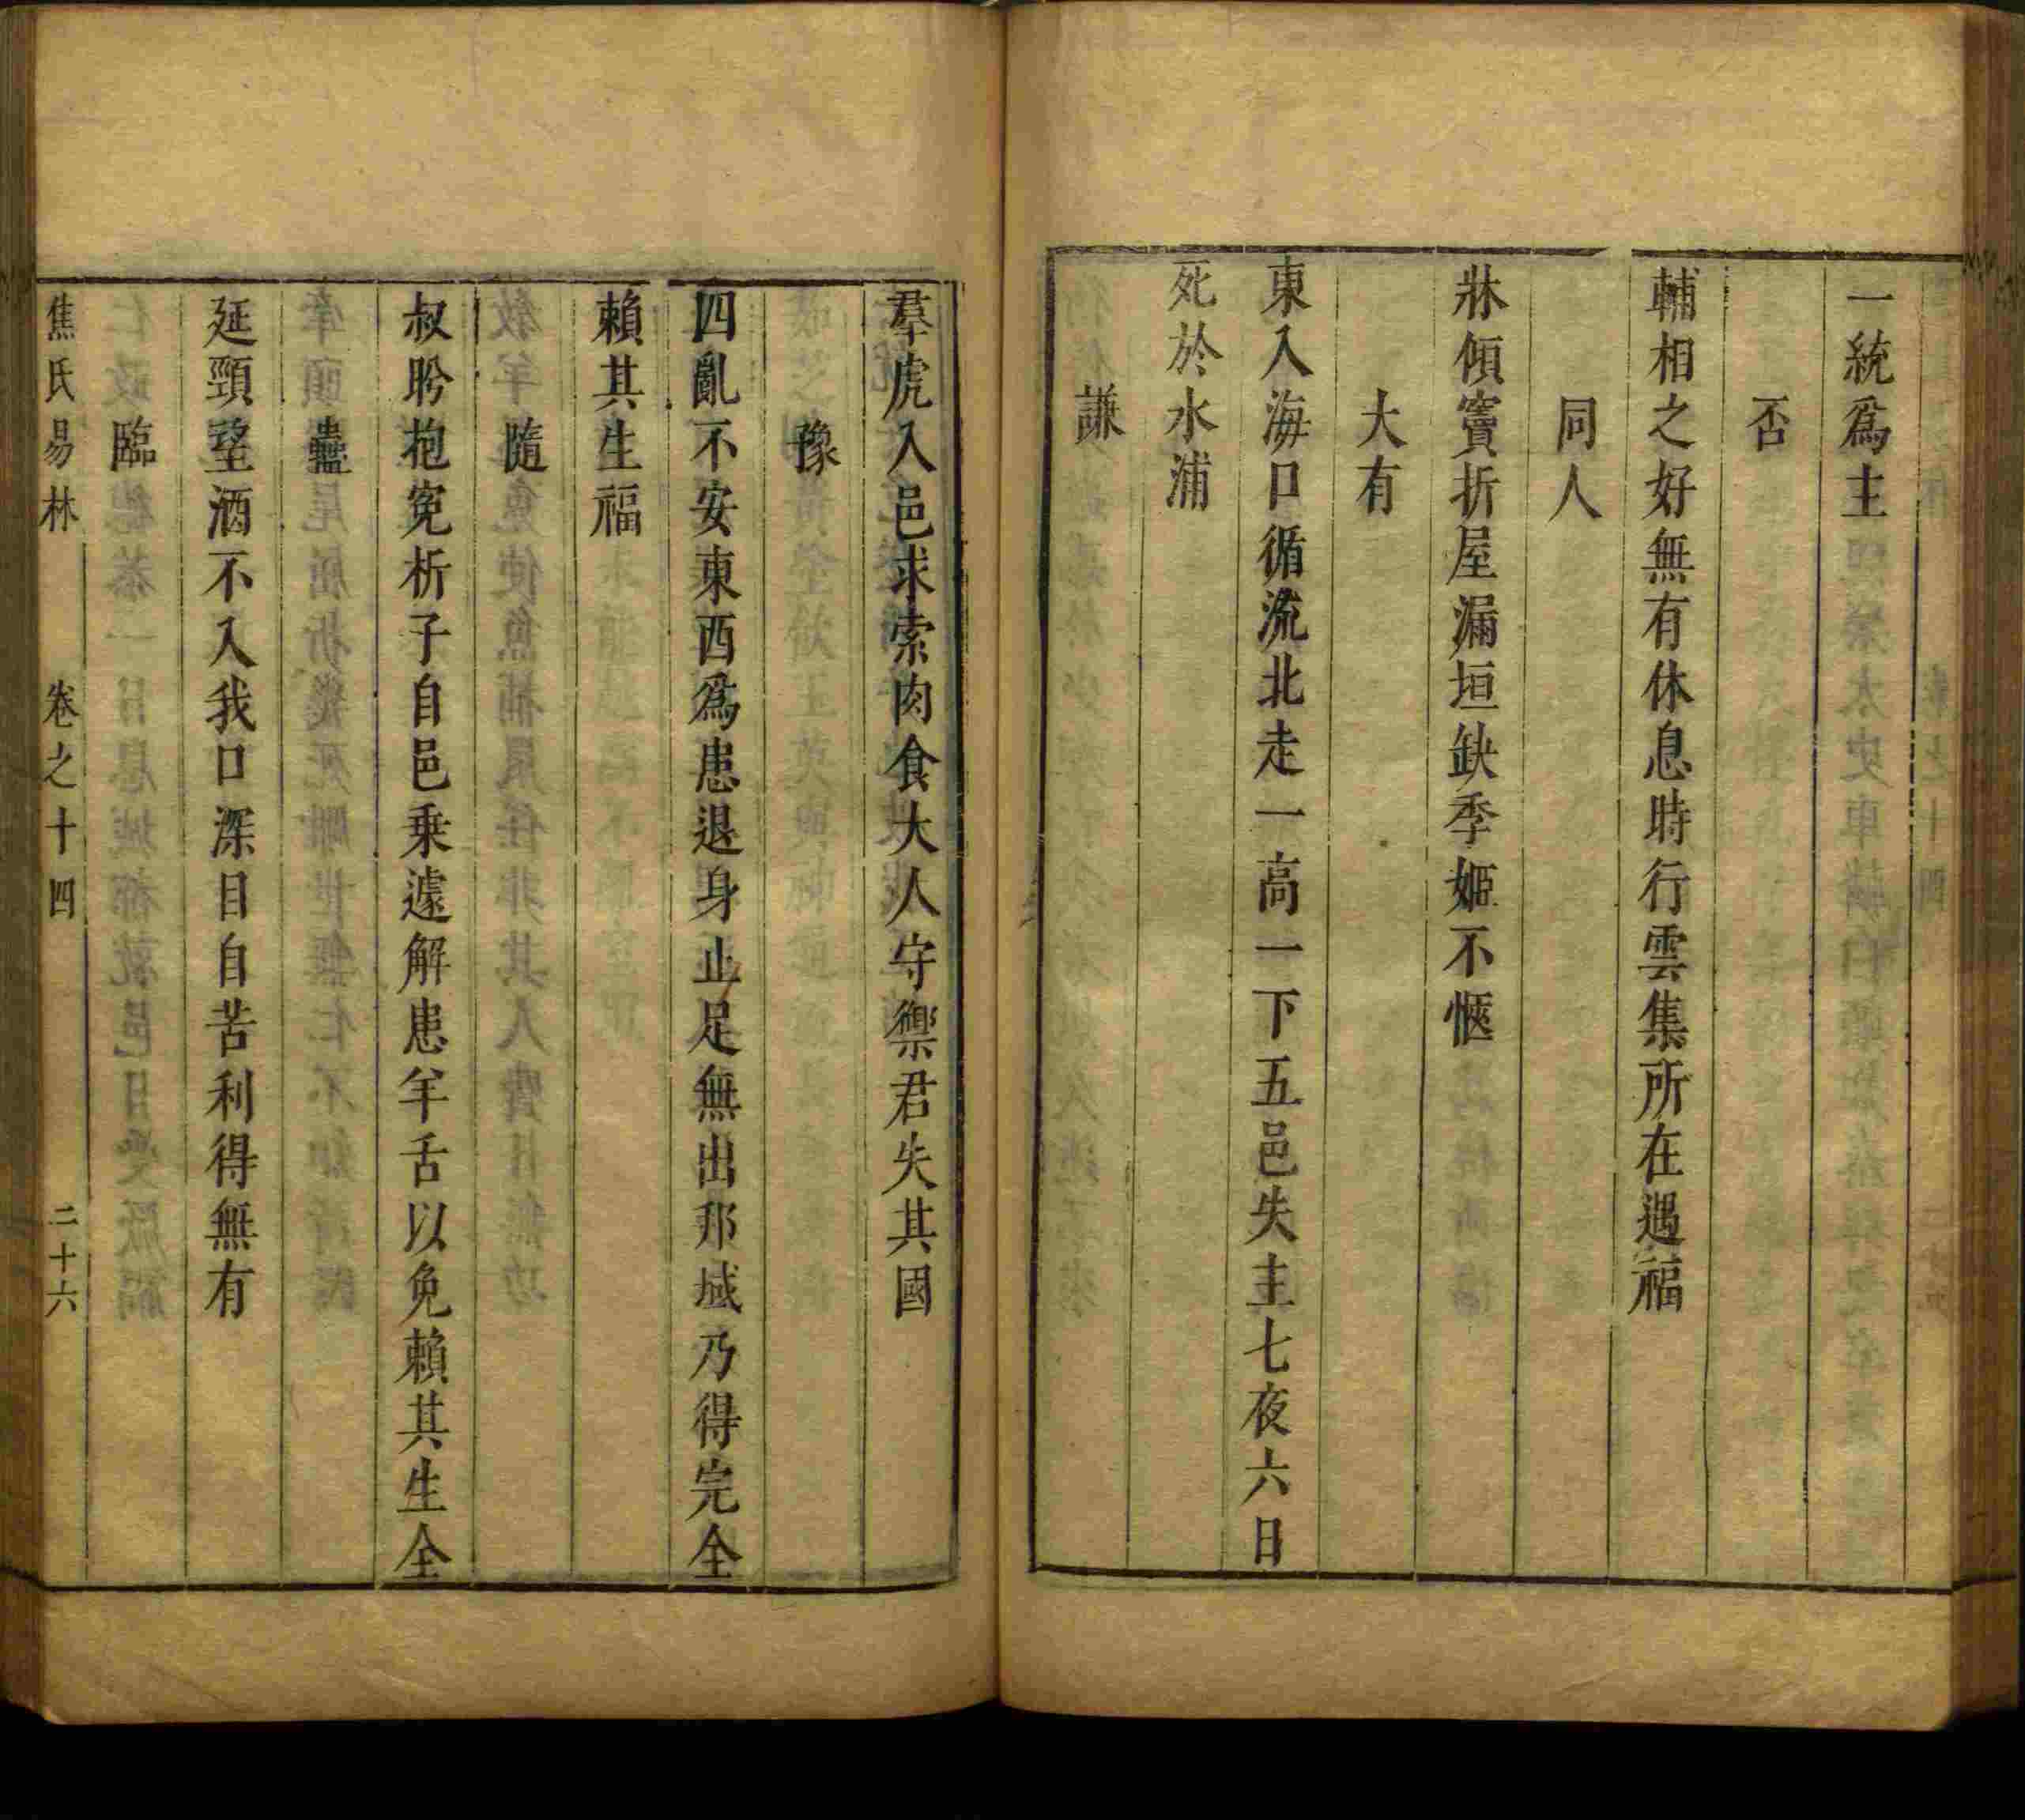 一統爲主
否
輔相之好無有休息時行雲集所在遇福
同人
牀傾竇折屋漏垣缺季姬不愜
大有
東入海口循流北走一高一下五邑失主七夜六日
死於水浦
謙
羣虎入邑求索肉食大人守禦君失其國
豫
四亂不安東西爲患退身止足無出邦域乃得完全
賴其生福
隨
叔肸抱寃析子自邑乗遽解患羊舌以免賴其生全
蠱
延頸望酒不入我口深目自苦利得無有
臨
焦氏易林 卷之十四 二十六